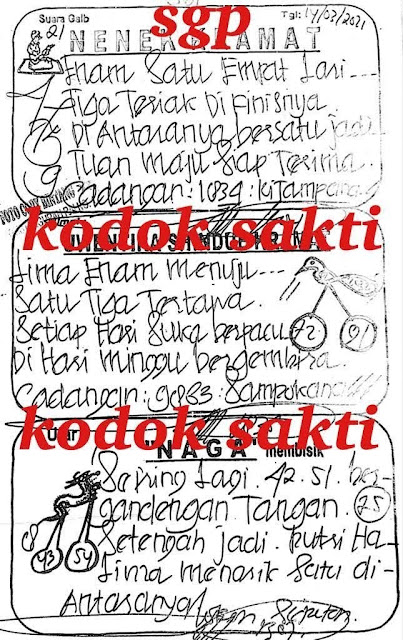 sgp
Suara Gaib Tgl: 14/03/2021
21 NENEK KRAMAT
Enam Satu Empat Lari
Tiga Teriak Di finisnya
Di Antaranya bersatu jadi
Tuan Maju Siap Terima
Cadangan: 1834:
kodok sakti
Lima Enam menuju
Satu Tiga Tertawa.
Setiap Hari Suka berpacu
72 91
Di Hari Minggu bergembira.
Cadangan: 9083:
kodok sakti
Ular "NAGA" membisik
Sarung Lagi. 42. 51.
gandengan Tangan. 75
8 43 54
Setengah jadi. Putri Ha-
Lima menarik Satu di-
Antaranya